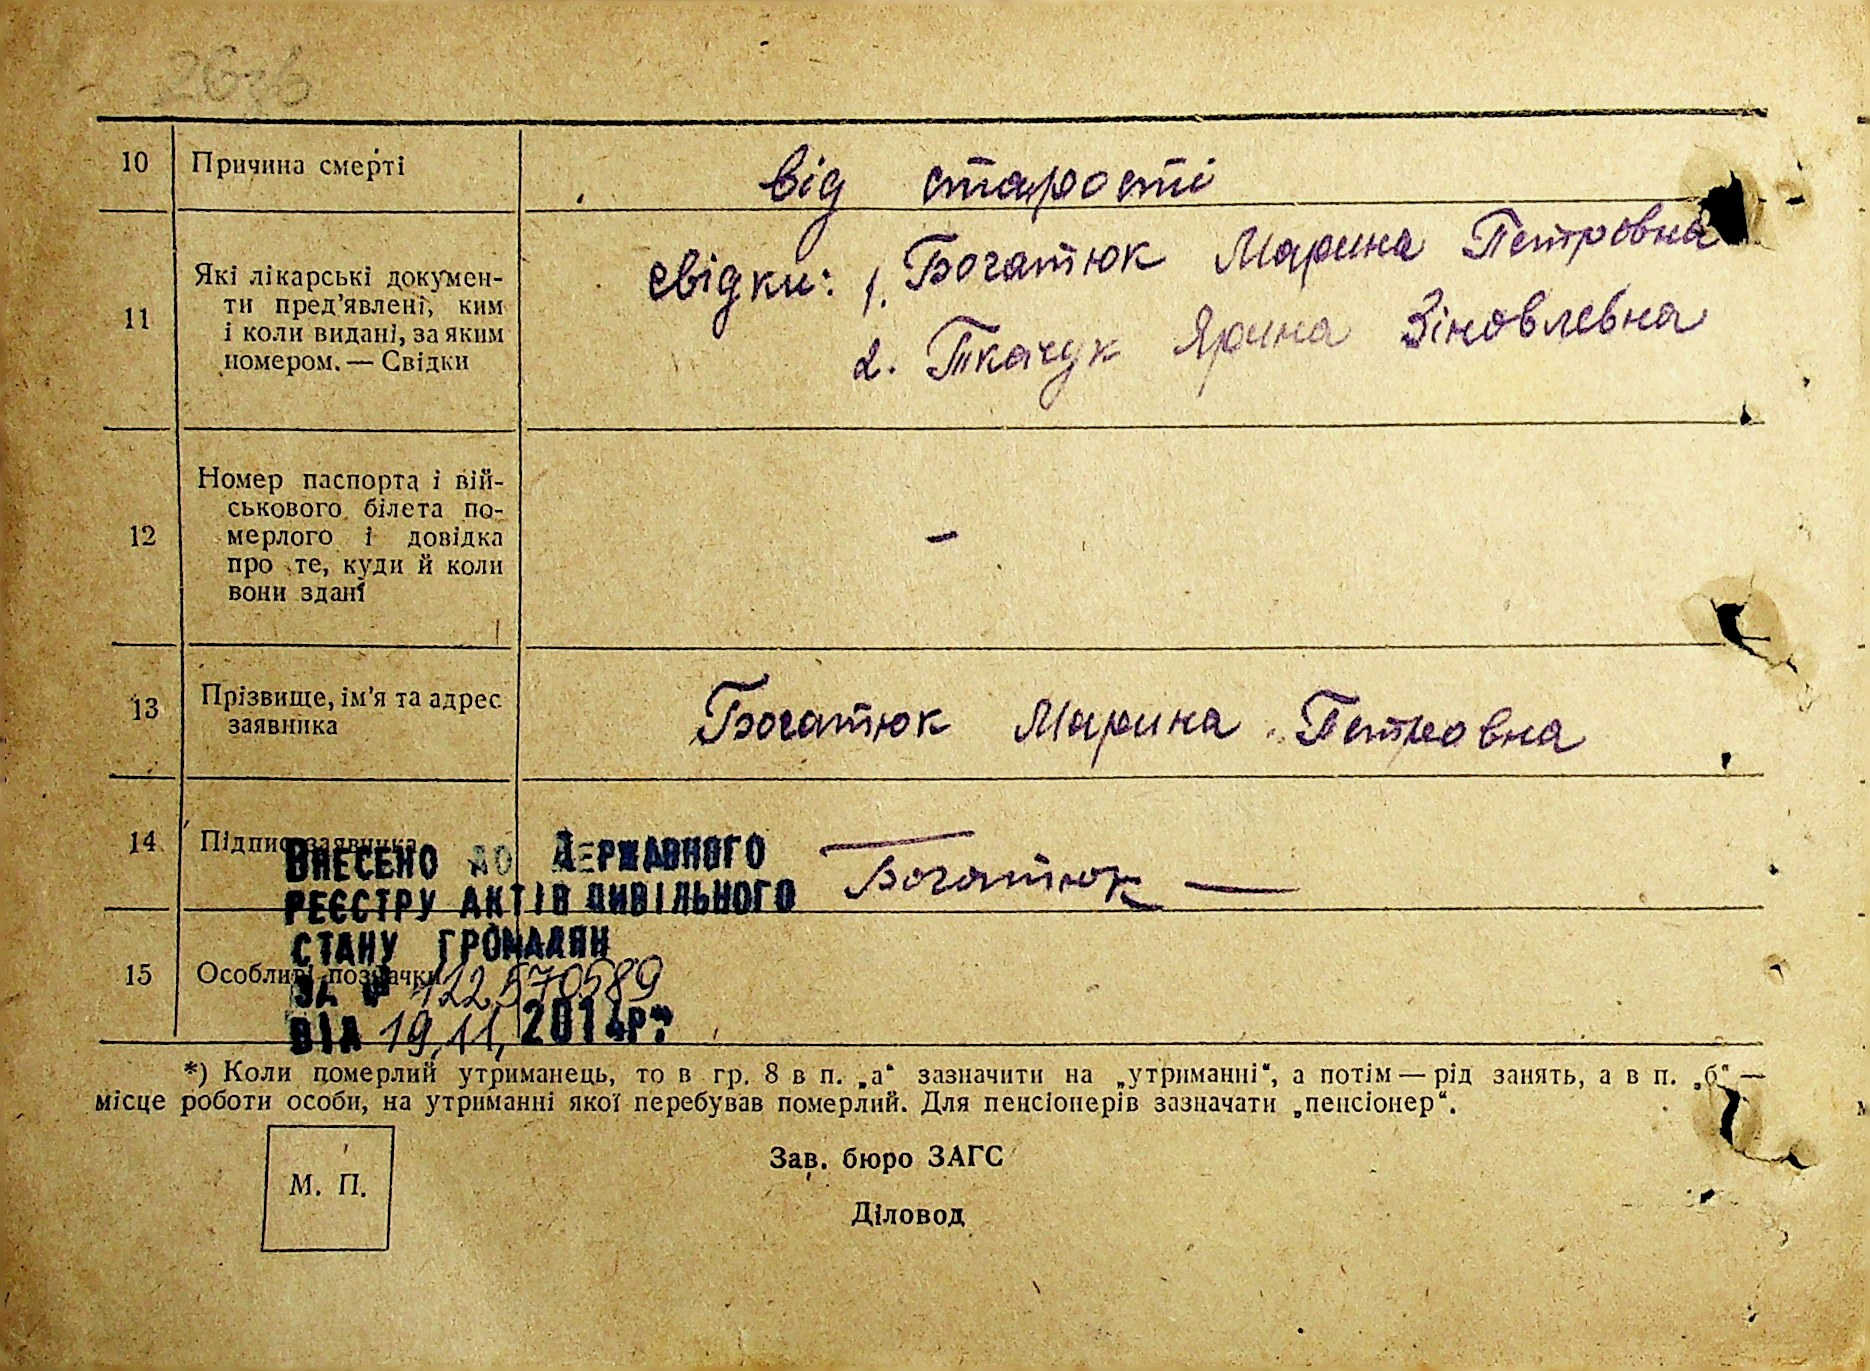 10 Причина смерті від старості
11 Які лікарські докумен-
ти пред'явлені, ким
і коли видані, за яким
номером. — Свідки
свідки: 1. Богатюк Марина Петровна
2. Ткачук Ярина Зіновлевна
12 Номер паспорта і вій-
ськового білета по-
мерлого і довідка
про те, куди й коли
вони здані
–
13 Прізвище, ім'я та адрес
заявника
Богатюк Марина Петровна
14 Підпис заявника Богатюк
ВНЕСЕНО ДО ДЕРЖАВНОГО
РЕЄСТРУ АКТІВ ЦИВІЛЬНОГО
СТАНУ ГРОМАДЯН
15 Особливі позначки
ЗА № 122570589
ВІД 19.11. 2014р.
*) Коли померлий утриманець, то в гр. 8 в п. „а“ зазначити на „утриманні“, а потім — рід занять, а в п. „б“ —
місце роботи особи, на утриманні якої перебував померлий. Для пенсіонерів зазначати „пенсіонер“.
Зав. бюро ЗАГС
М. П.
Діловод